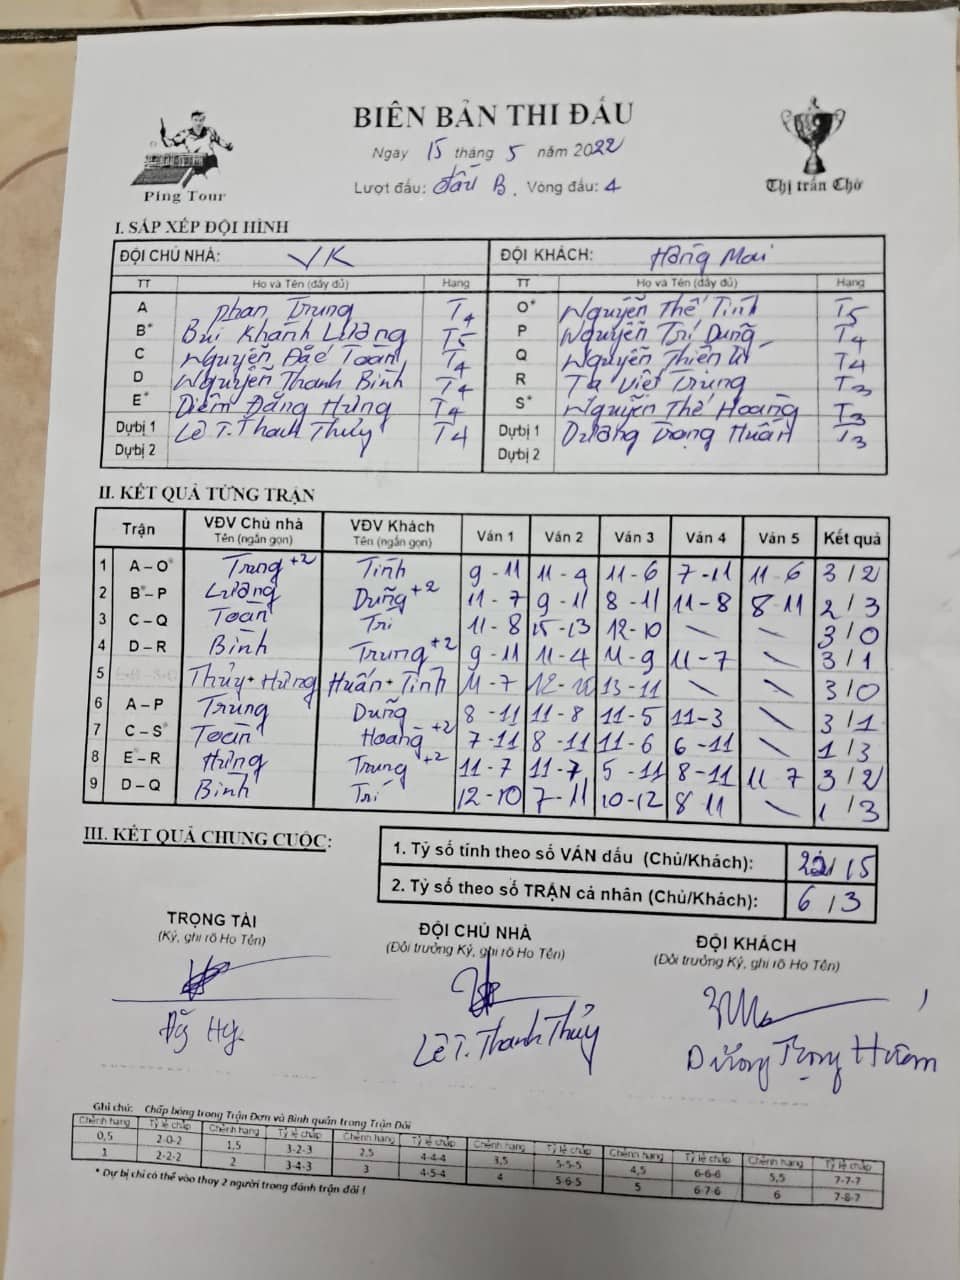 BIÊN BẢN THI ĐẤU
Ngày 15 tháng 5 năm 2022
Lượt đấu: Đấu B. Vòng đấu: 4
Ping Tour
Thị trấn Chờ
I. SẮP XẾP ĐỘI HÌNH
ĐỘI CHỦ NHÀ: VK ĐỘI KHÁCH: Hàng Mai
TT Họ và Tên (đầy đủ) Hạng TT Họ và Tên (đầy đủ) Hạng
A Phan Trung T4 O* Nguyễn Thế Tính T5
B* Bùi Khánh Lương T5 P Nguyễn Trí Dũng T4
C Nguyễn Đắc Toàn T4 Q Nguyễn Thiên T4
D Nguyễn Thanh Bình T4 R Tạ Việt Trung T3
E* Diêm Đăng Hưng T4 S* Nguyễn Thế Hoàng T3
Dự bị 1 Lê T. Thanh Thủy T4 Dự bị 1 Dương Trọng Huấn T3
Dự bị 2 Dự bị 2
II. KẾT QUẢ TỪNG TRẬN
Trận VĐV Chủ nhà VĐV Khách Ván 1 Ván 2 Ván 3 Ván 4 Ván 5 Kết quả
Tên (ngắn gọn) Tên (ngắn gọn)
1 A – O* Trung +2 Tính 9 - 11 11 - 4 11 - 6 7 - 11 11 - 6 3 / 2
2 B* – P Lương Dũng +2 11 - 7 9 - 11 8 - 11 11 - 8 8 - 11 2 / 3
3 C – Q Toàn Trí 11 - 8 15 - 13 12 - 10 \ \ 3 / 0
4 D – R Bình Trung +2 9 - 11 11 - 4 11 - 9 11 - 7 \ 3 / 1
5 Thủy + Hưng Huấn + Tính 11 - 7 12 - 10 13 - 11 \ \ 3 / 0
6 A – P Trung Dũng 8 - 11 11 - 8 11 - 5 11 - 3 \ 3 / 1
7 C – S* Toàn Hoàng +2 7 - 11 8 - 11 11 - 6 6 - 11 \ 1 / 3
8 E* – R Hưng Trung +2 11 - 7 11 - 7 5 - 11 8 - 11 11 7 3 / 2
9 D – Q Bình Trí 12 - 10 7 - 11 10 - 12 8 11 \ 1 / 3
III. KẾT QUẢ CHUNG CUỘC:
1. Tỷ số tính theo số VÁN đấu (Chủ/Khách): 22 / 15
2. Tỷ số theo số TRẬN cá nhân (Chủ/Khách): 6 / 3
TRỌNG TÀI ĐỘI CHỦ NHÀ ĐỘI KHÁCH
(Ký, ghi rõ Họ Tên) (Đội trưởng Ký, ghi rõ Họ Tên) (Đội trưởng Ký, ghi rõ Họ Tên)
Lê T. Thanh Thủy Dương Trọng Huấn
Ghi chú: Chấp bóng trong Trận Đơn và Bình quân trong Trận Đôi
Chênh hạng Tỷ lệ chấp Chênh hạng Tỷ lệ chấp Chênh hạng Tỷ lệ chấp Chênh hạng Tỷ lệ chấp Chênh hạng Tỷ lệ chấp Chênh hạng Tỷ lệ chấp
0,5 2-0-2 1,5 3-2-3 2,5 4-4-4 3,5 5-5-5 4,5 6-6-6 5,5 7-7-7
1 2-2-2 2 3-4-3 3 4-5-4 4 5-6-5 5 6-7-6 6 7-8-7
* Dự bị chỉ có thể vào thay 2 người trong đánh trận đôi !